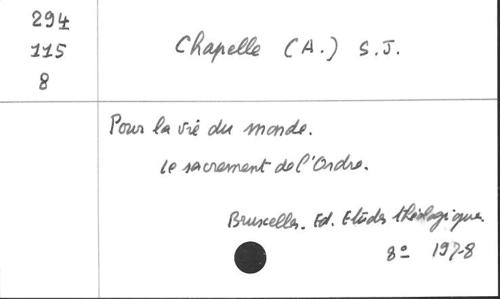 294
115
8
Chapelle (A.) S.J.
Pour la vie du monde.
Le sacrement de l'Ordre.
Bruxelles. Ed. Etudes théologiques.
8º 1978